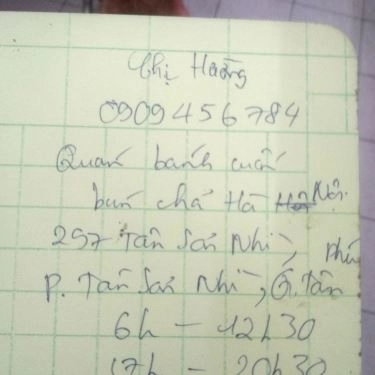 Chị Hằng
0909456784
Quán bánh cuốn
bún chả Hà Nội.
297 Tân Sơn Nhì, Phú
P. Tân Sơn Nhì, Q. Tân
6h – 12h30
17h – 20h30